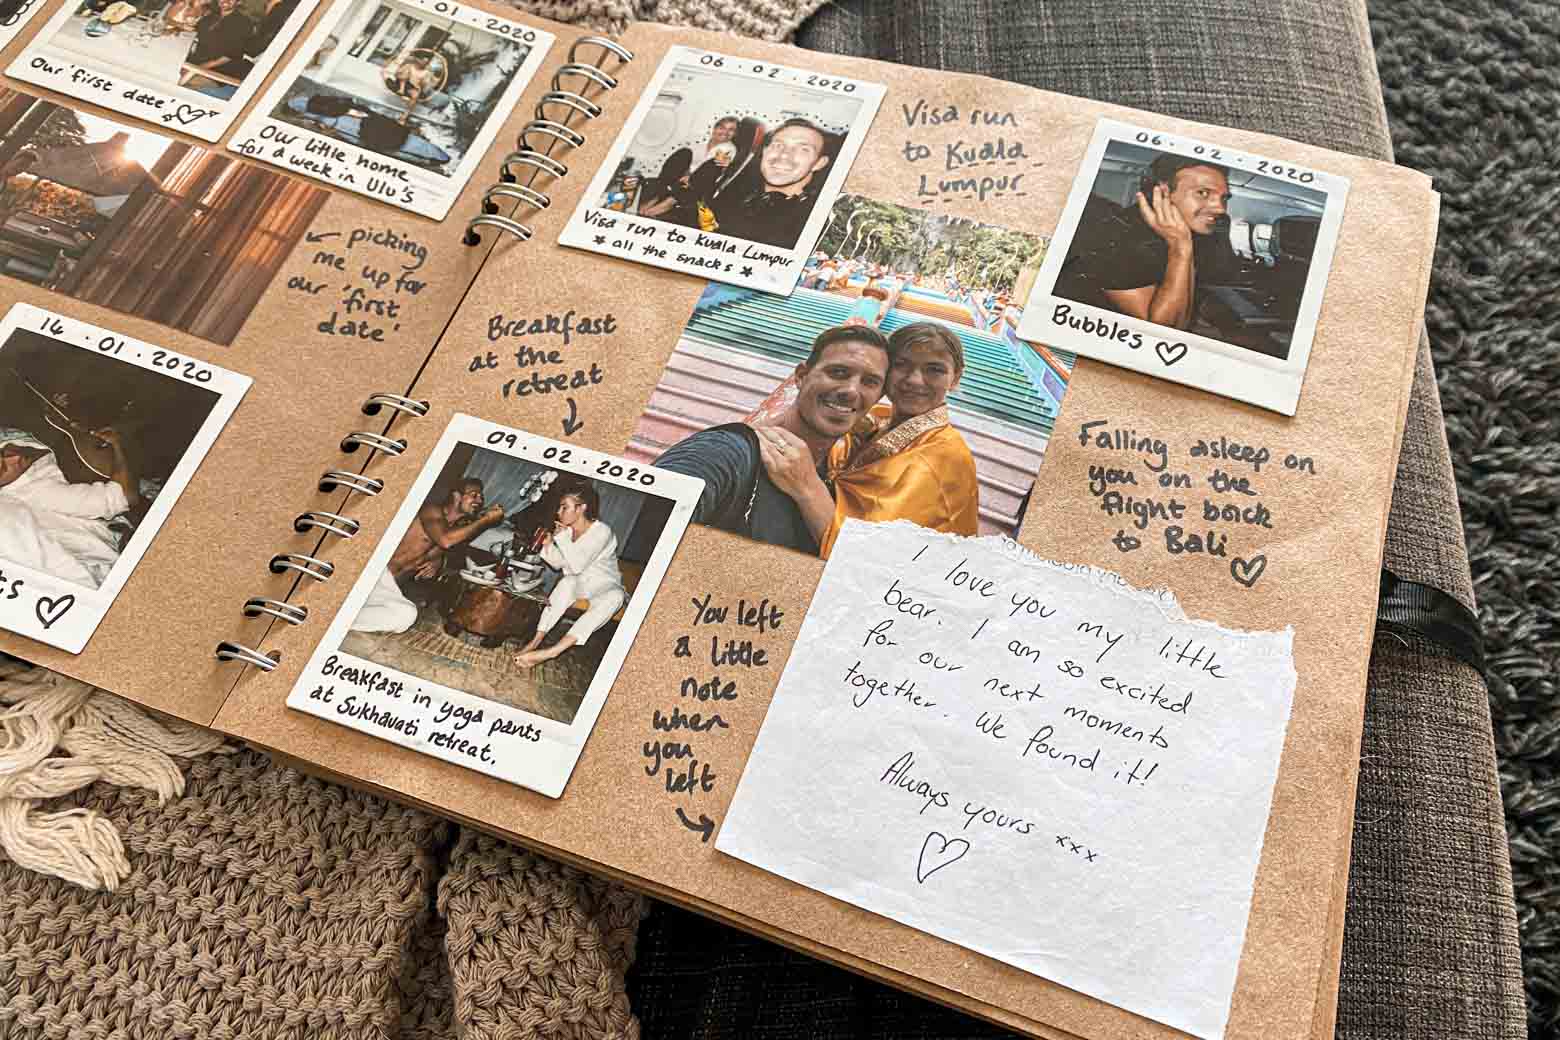 Our 'first date'
.01.2020
Our little home
for a week in Ulu's
picking
me up for
our 'first
date'
14.01.2020
06.02.2020
Visa run to Kuala Lumpur
* all the snacks *
Visa run
to Kuala
Lumpur
06.02.2020
Bubbles
Breakfast
at the
retreat
09.02.2020
Breakfast in yoga pants
at Sukhavati retreat.
Falling asleep on
you on the
flight back
to Bali
You left
a little
note
when
you
left
I love you my little
bear. I am so excited
for our next moments
together. We found it!
Always yours xxx